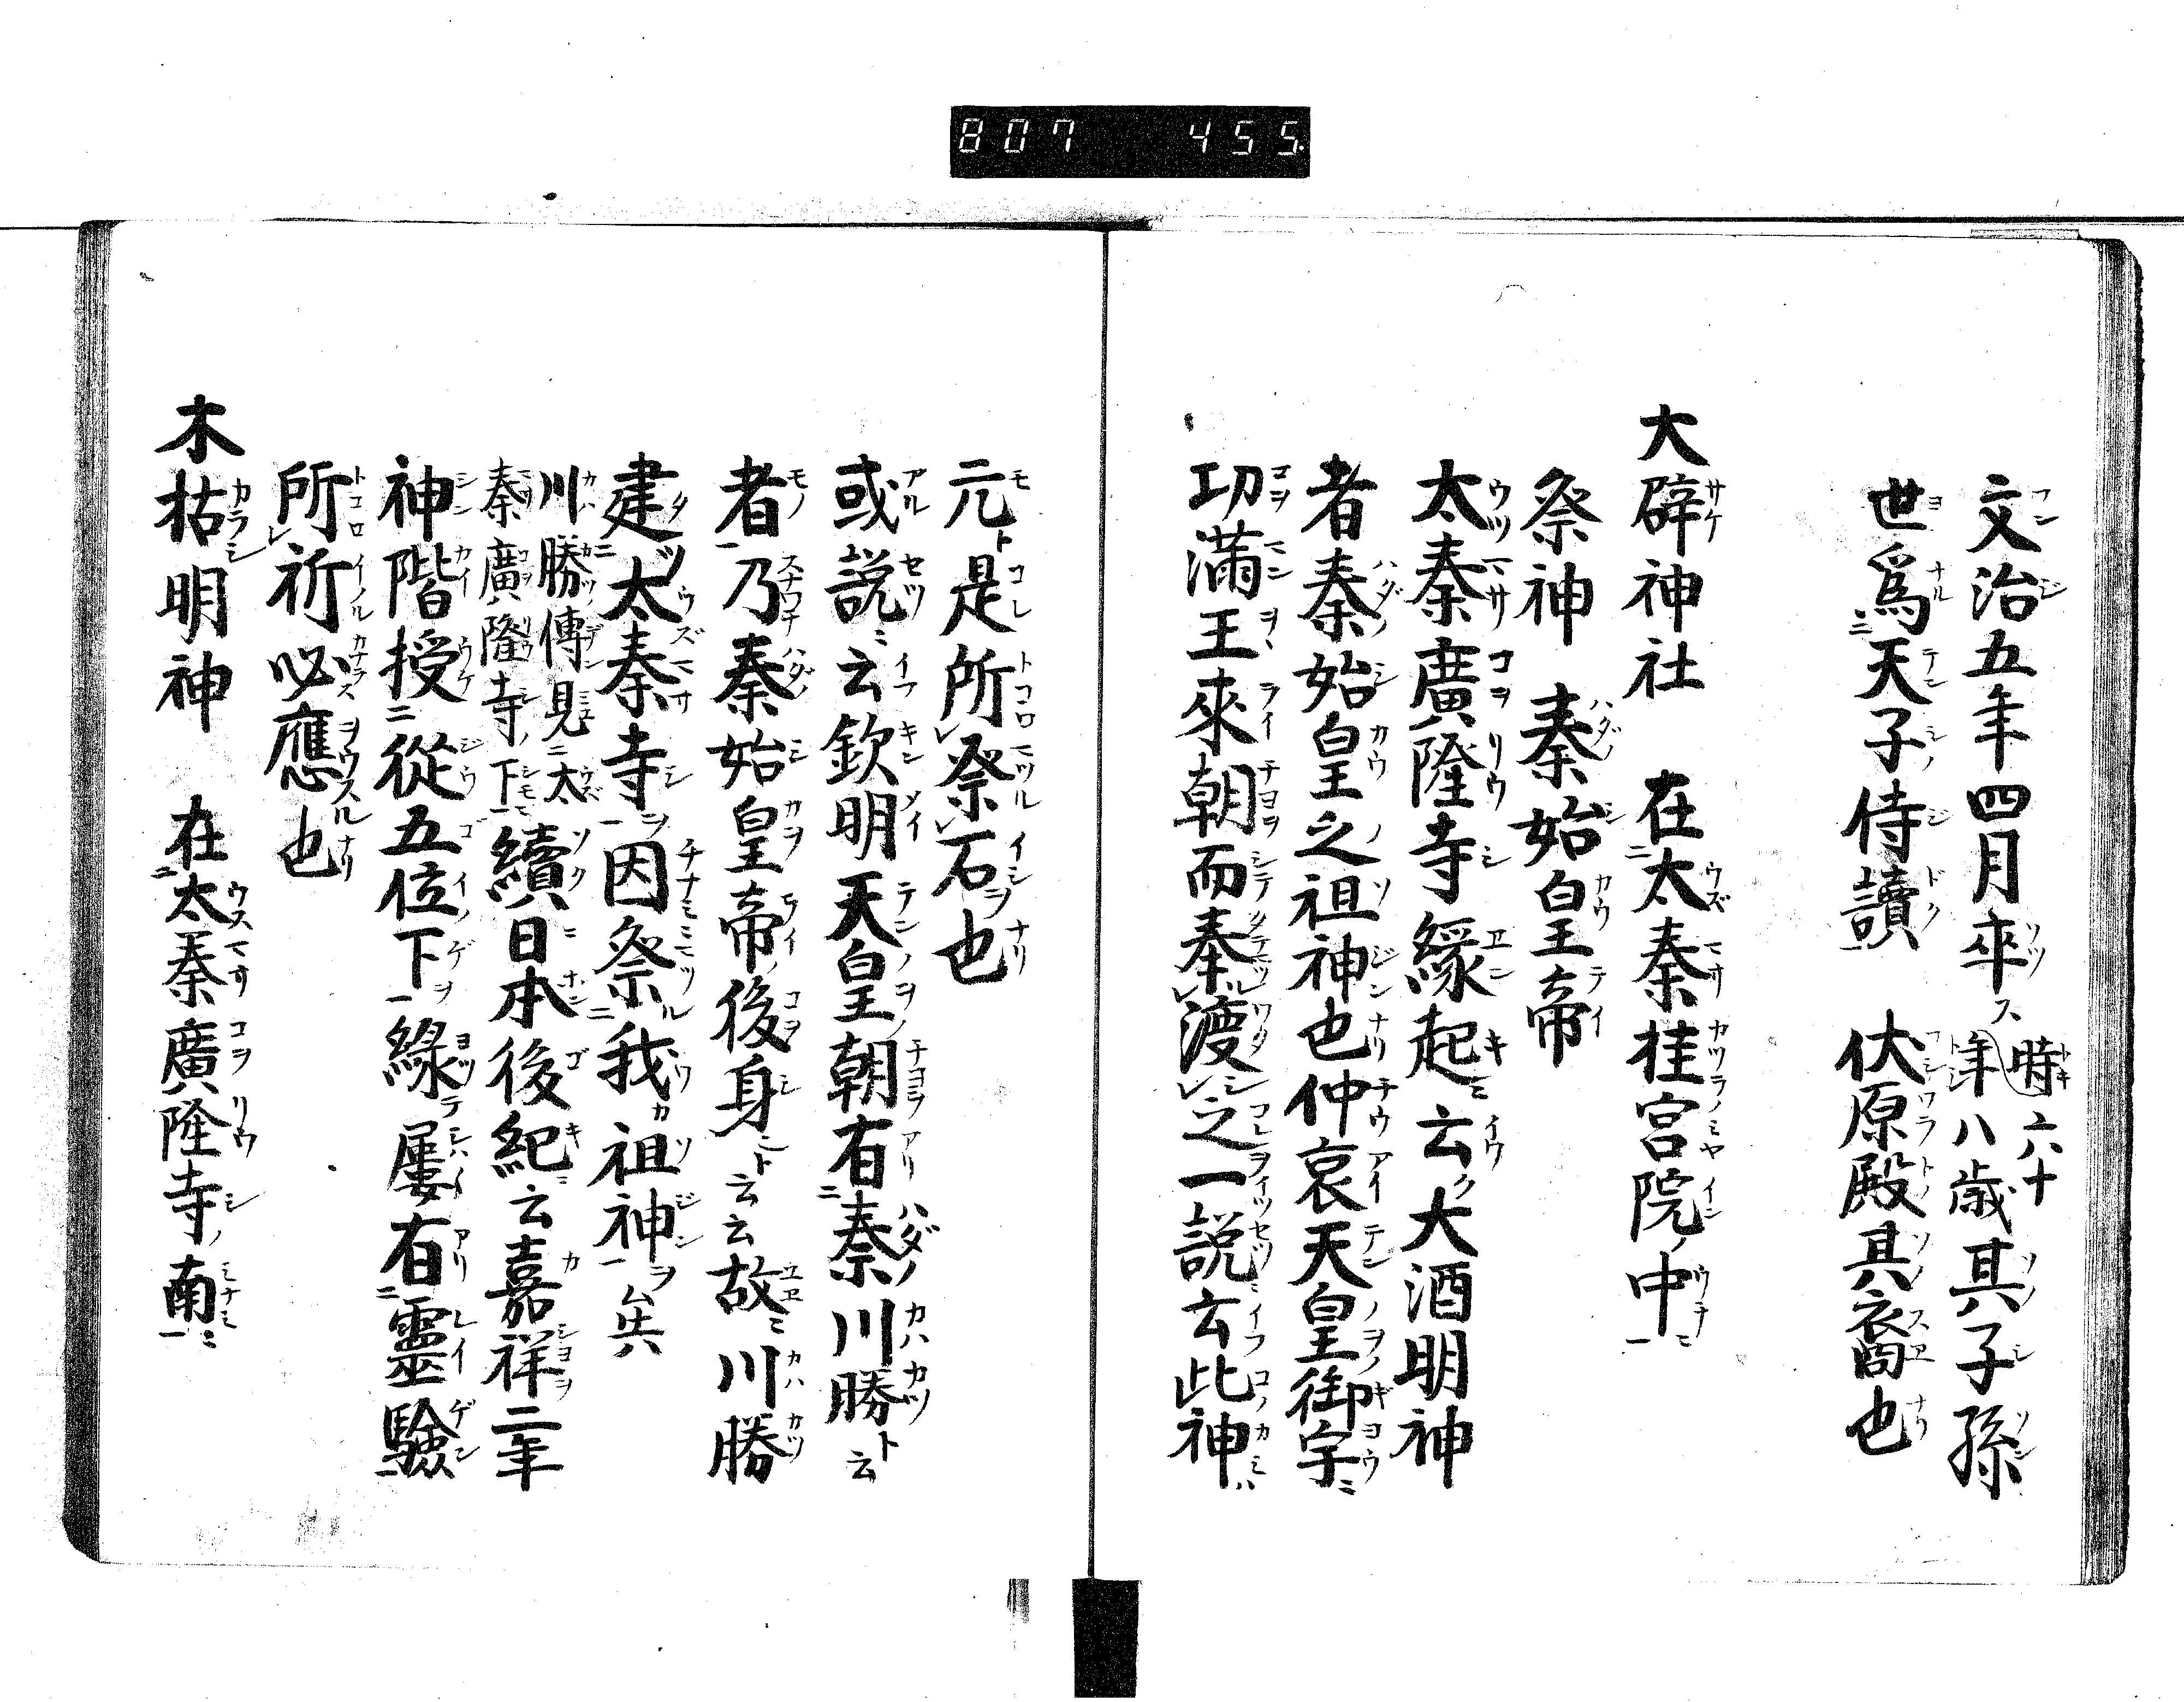 807 455.
文治五年四月卒ス時年六十八歳其子孫
世爲天子侍讀 伏原殿其裔也
大辟神社 在太秦桂宮院中
祭神 秦始皇帝
太秦廣隆寺緣起云大酒明神
者秦始皇之祖神也仲哀天皇御宇
功滿王來朝而奉渡之一說云此神
元是所祭石也
或說云欽明天皇朝有秦川勝ト云
者乃秦始皇帝後身ト云云故川勝
建太秦寺因祭我祖神矣
川勝傳見太秦廣隆寺下
續日本後紀云嘉祥二年
神階授從五位下緣屢有靈驗
所祈必應也
木枯明神 在太秦廣隆寺南